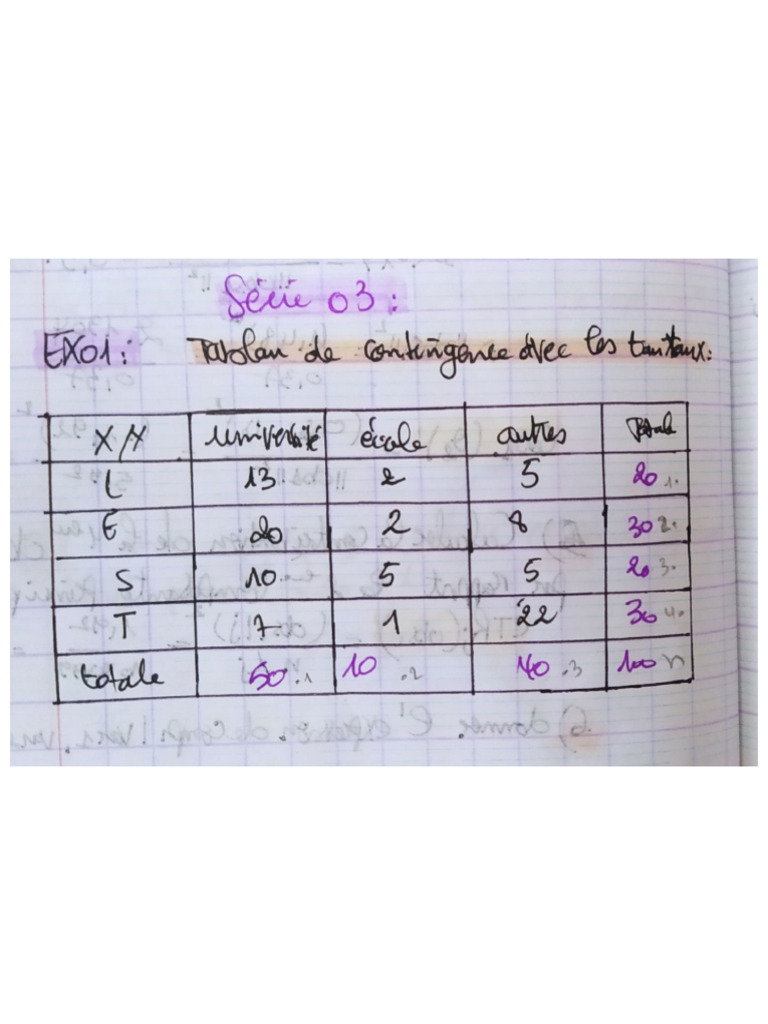 Série 03:
EX01: Tablau de contingence avec les tautaux:
X/Y université école autres Totale
L 13 2 5 20 1.
E 20 2 8 30 2.
S 10 5 5 20 3.
T 7 1 22 30 4.
totale 50 .1 10 .2 40 .3 100 n